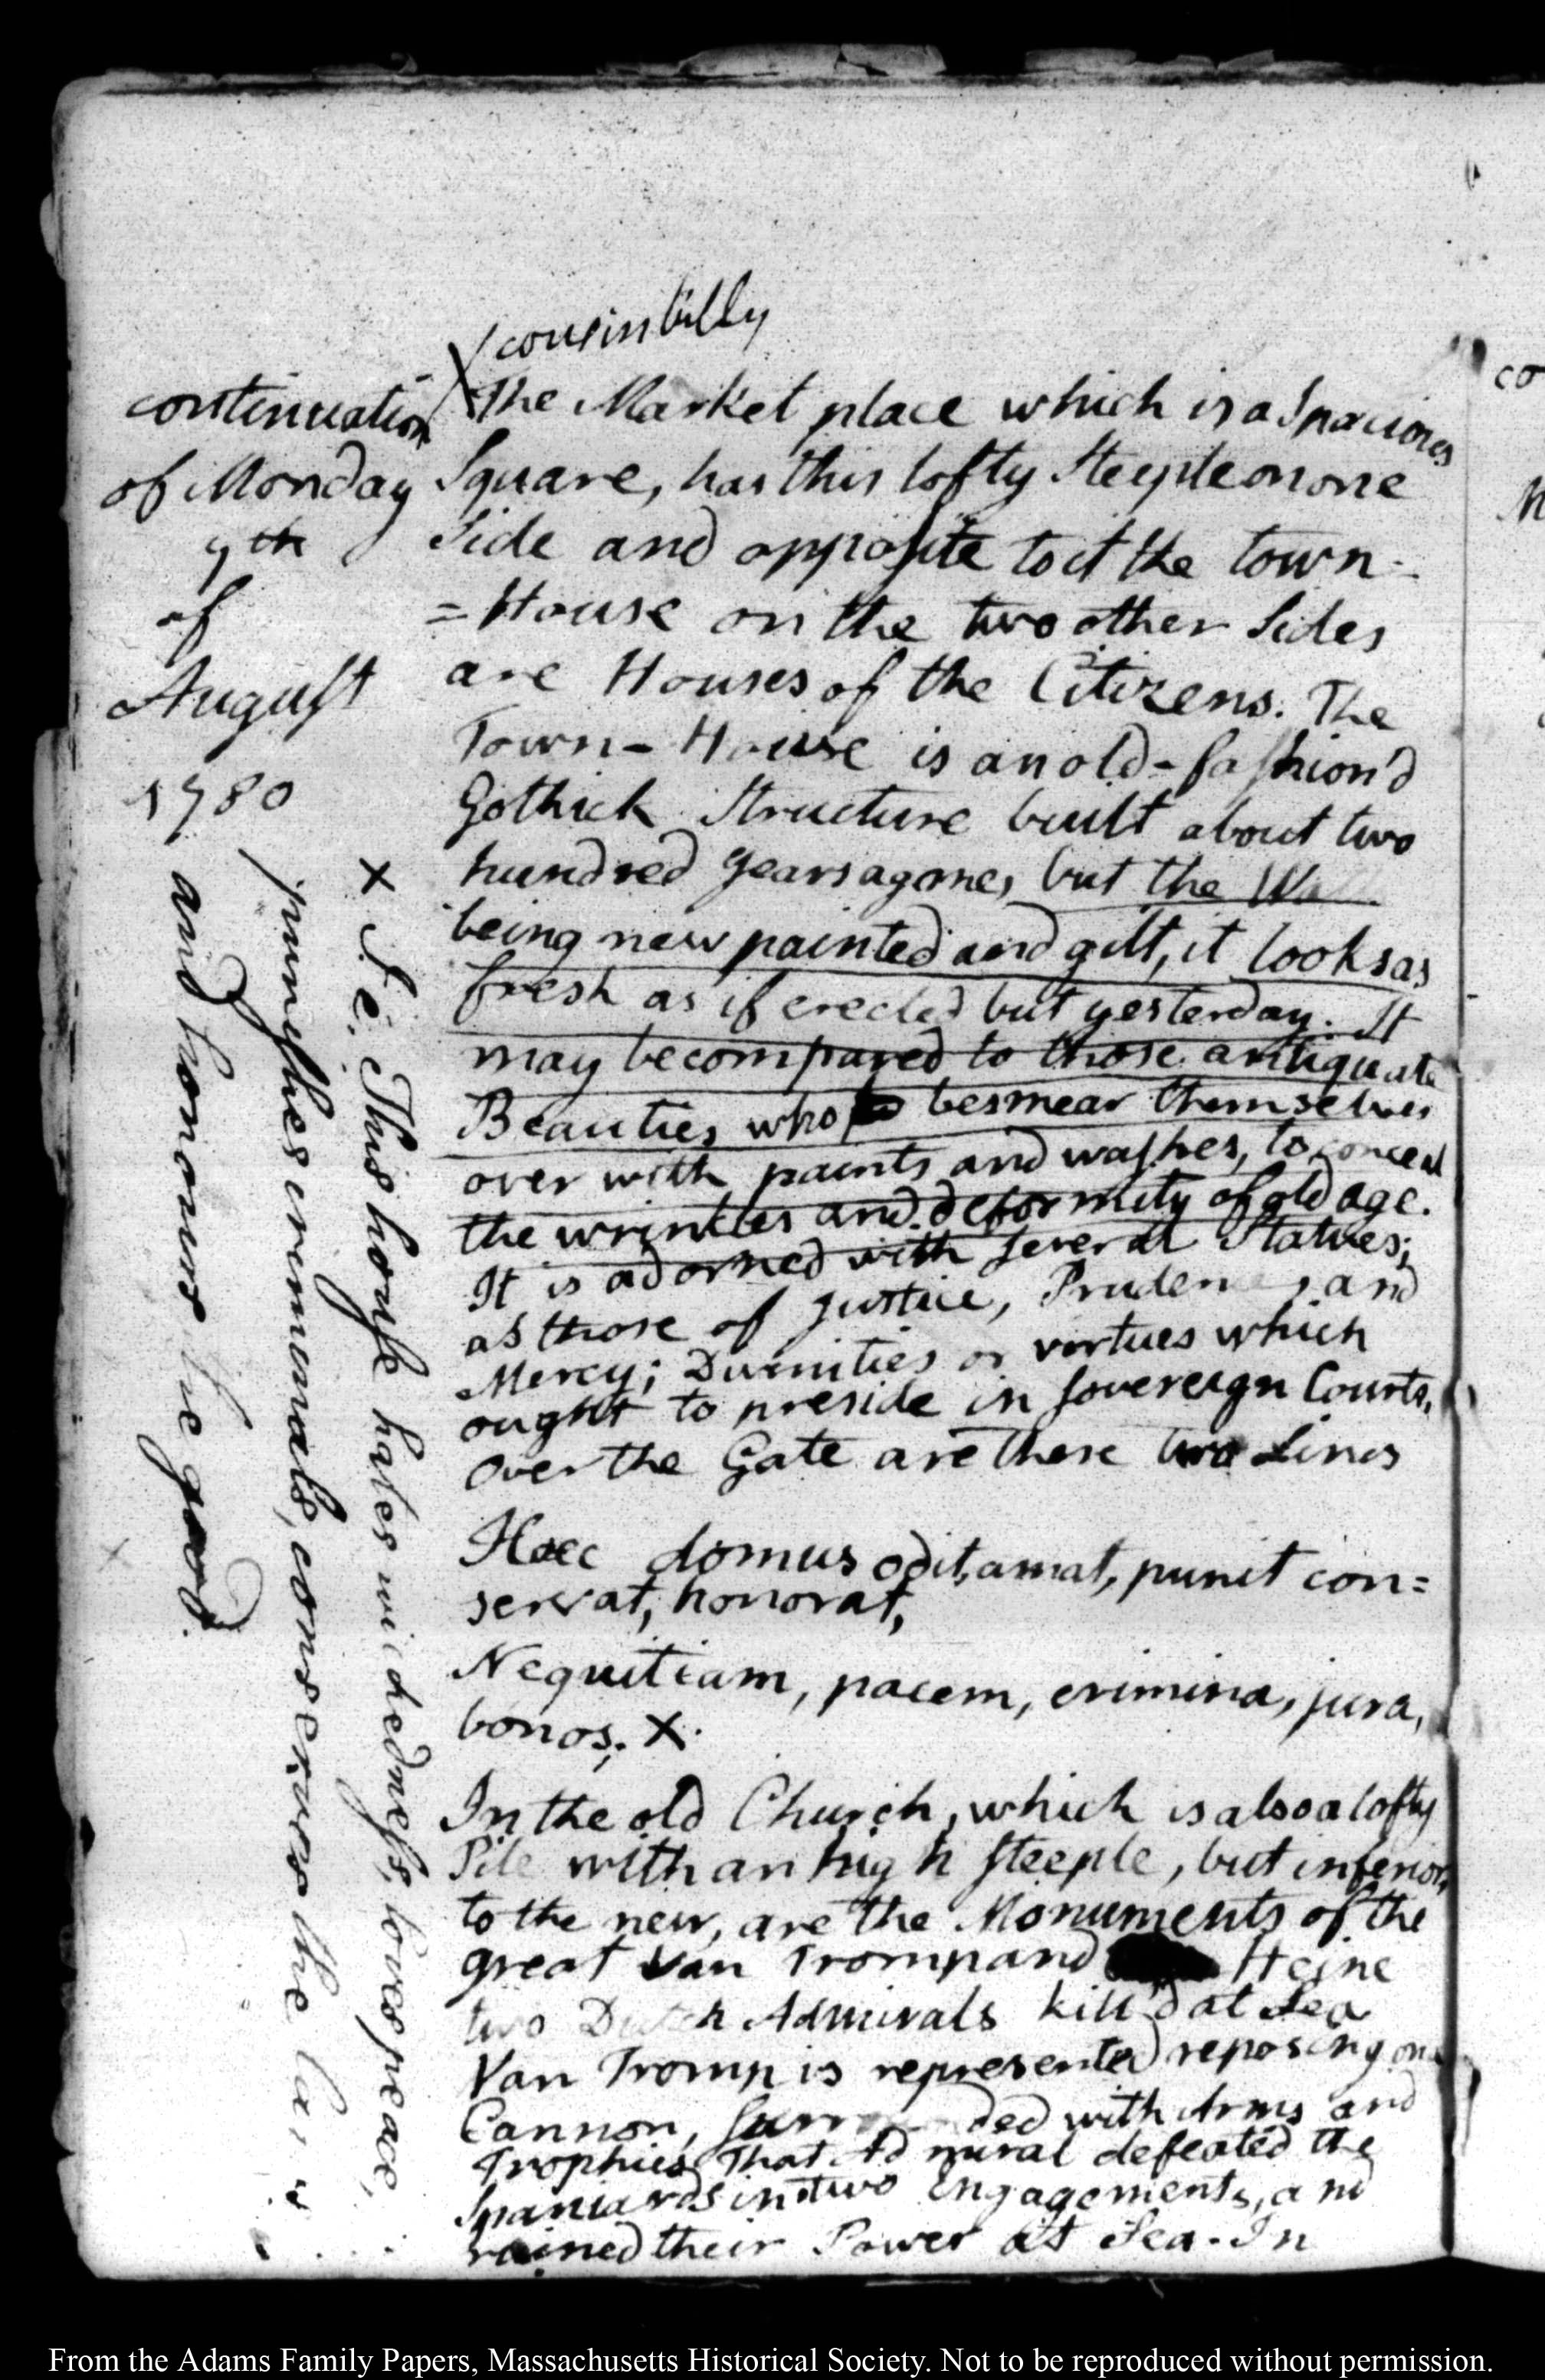 cousin billy
continuation
of Monday
7th
of
August
1780
The Market place which is a Spacious
Square, has this lofty Steeple on one
Side and opposite to it the town-
=House on the two other Sides
are Houses of the Citizens. The
Town-House is an old-fashion'd
Gothick Structure built about two
hundred years agone, but the
being new painted and gilt, it looks as
fresh as if erected but yesterday. It
may be compared to those antiquate
Beauties who besmear themselves
over with paints and washes, to conceal
the wrinkles and deformity of old age.
It is adorned with several Statues;
as those of Justice, Prudence, and
Mercy; Divinities or virtues which
ought to preside in Sovereign Courts.
Over the Gate are these two Lines
Haec domus odit, amat, punit con=
servat, honorat,
Nequitiam, pacem, crimina, jura,
bonos. X.
In the old Church, which is also a lofty
Pile with an high Steeple, but inferior,
to the new, are the Monuments of the
great Van Tromp and Heine
two Dutch Admirals kill'd at Sea
Van Tromp is represented reposing on
Cannon, Surrounded with Arms and
Trophies That Admiral defeated the
Spaniards in two Engagements, and
rained their Power at Sea. In
X I.e. This house hates wickedness, loves peace,
punishes criminals, conserves the law
and honours the good.
From the Adams Family Papers, Massachusetts Historical Society. Not to be reproduced without permission.